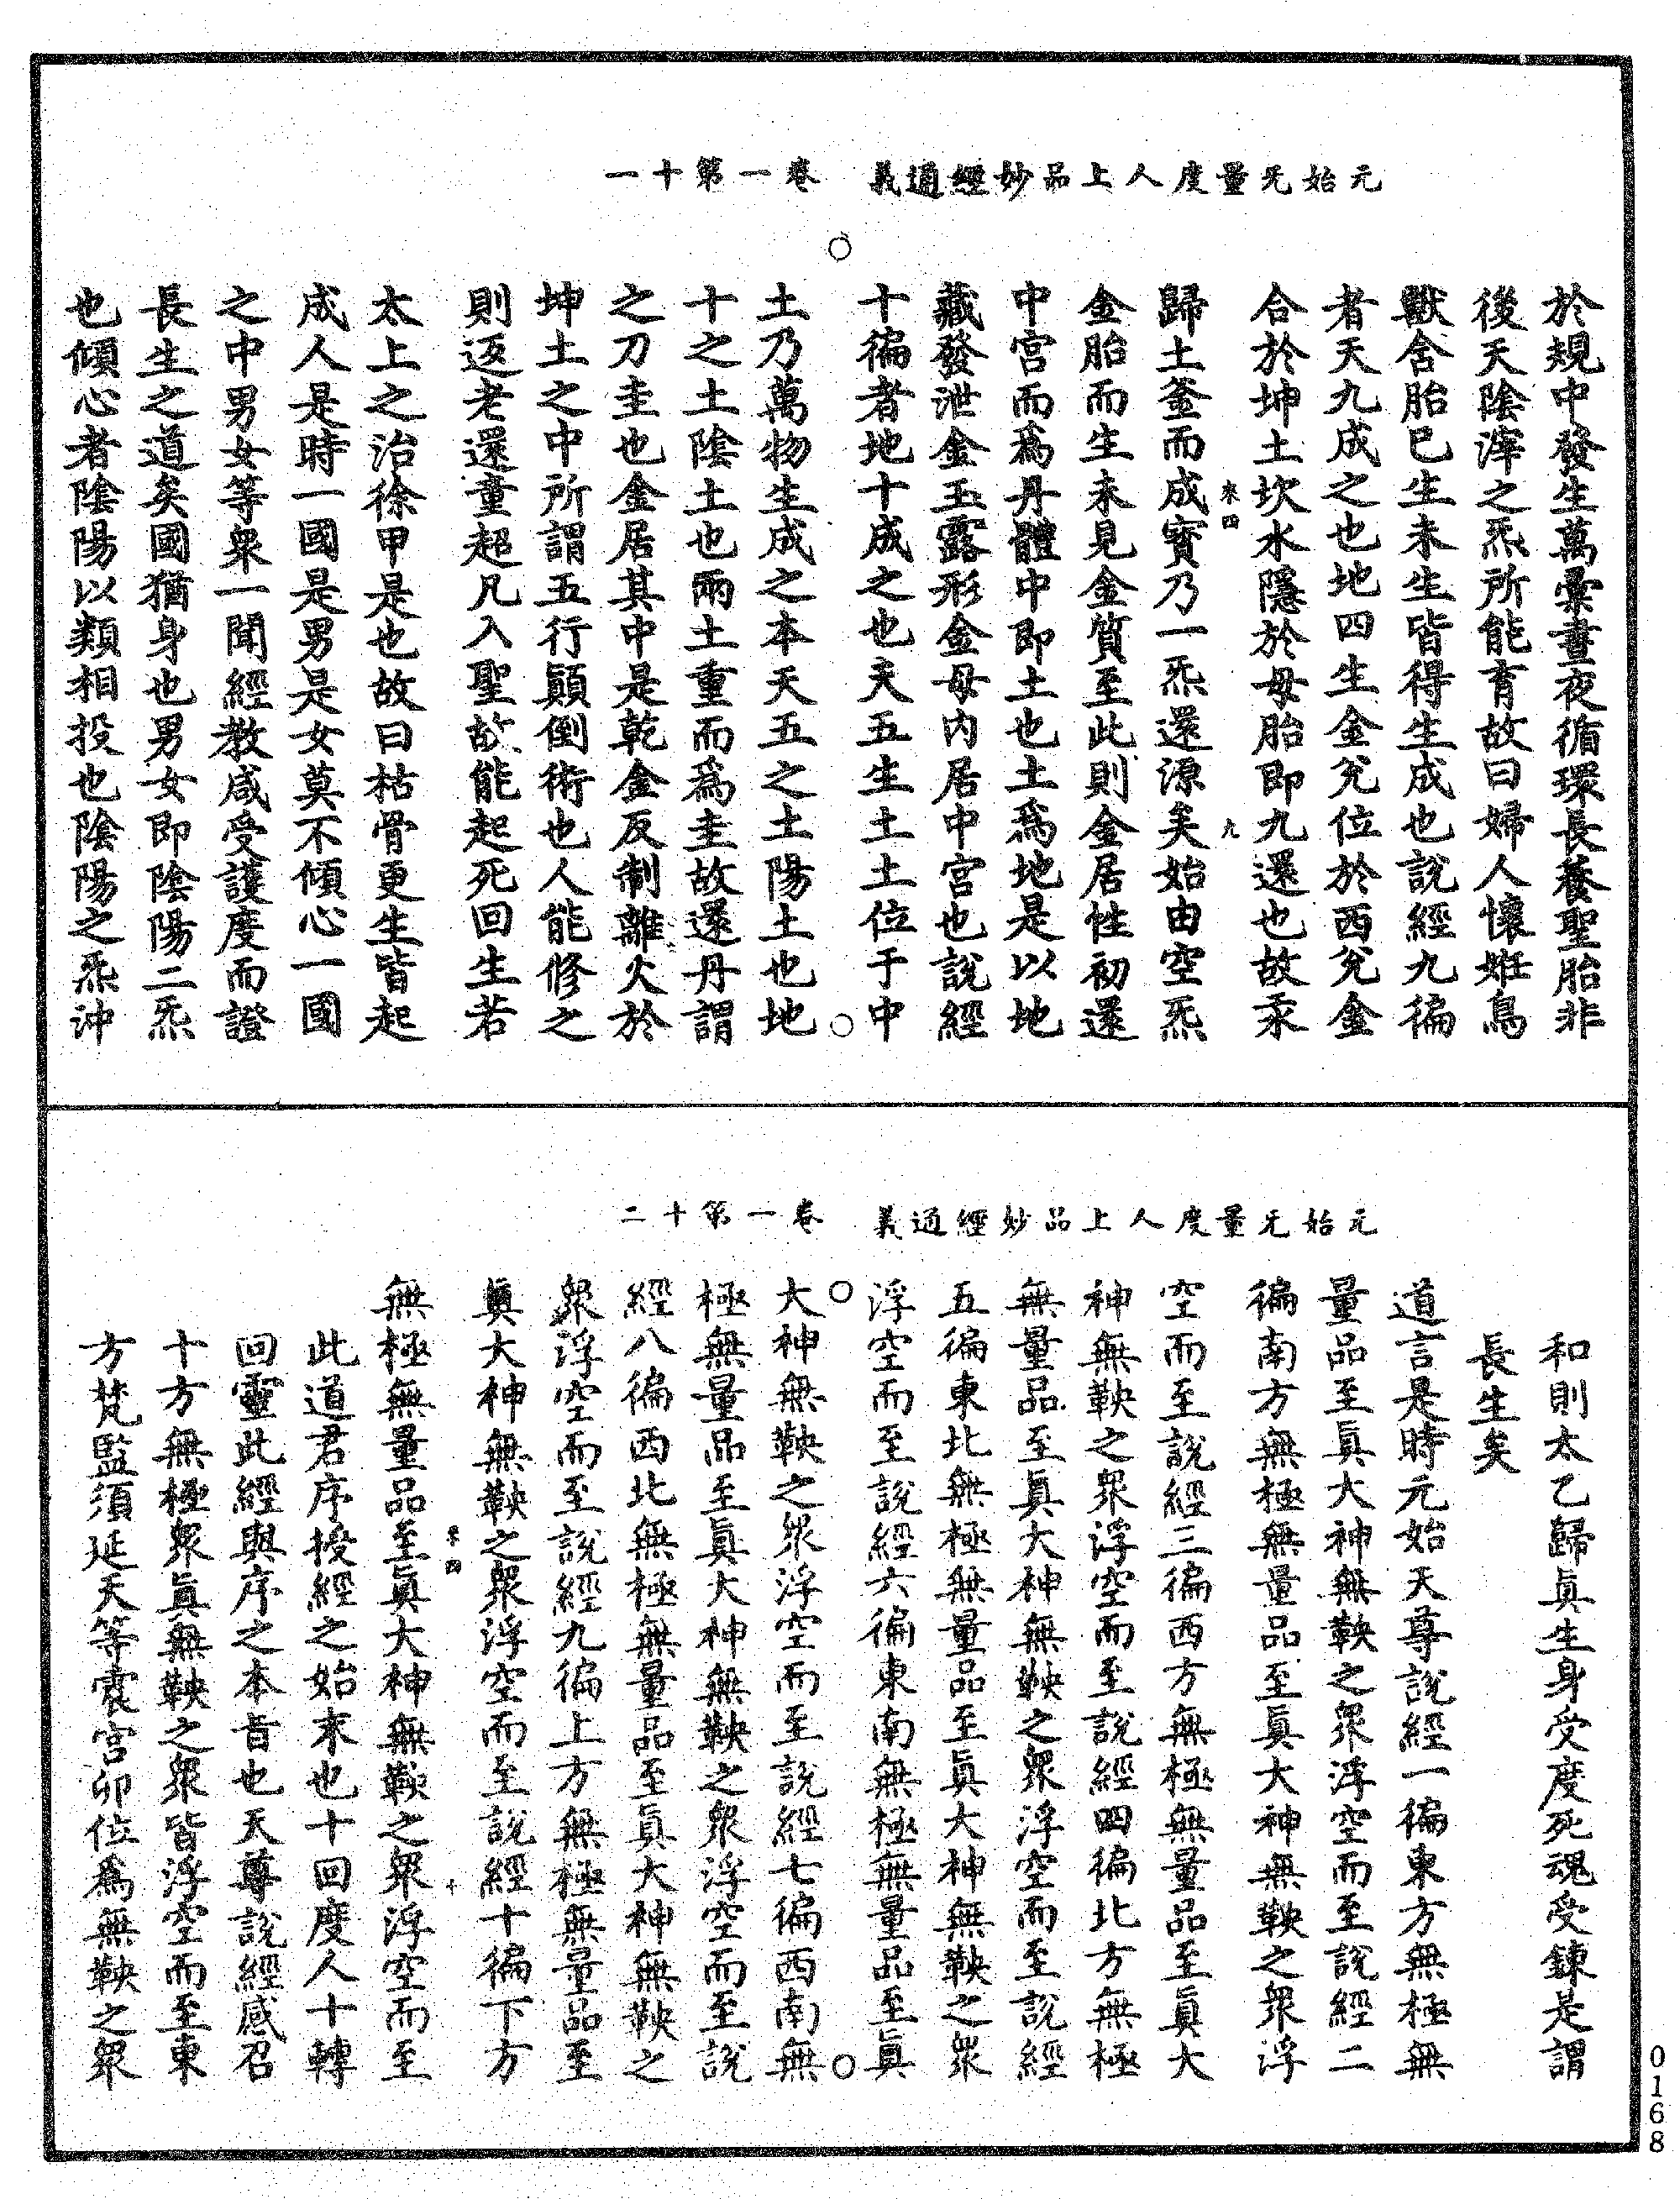 元始无量度人上品妙經通義　卷一第十一
於規中發生萬彙晝夜循環長養聖胎非
後天陰滓之炁所能育故曰婦人懷姙鳥
獸含胎已生未生皆得生成也說經九徧
者天九成之也地四生金兊位於西兊金
合於坤土坎水隱於母胎即九還也故汞
歸土釜而成寶乃一炁還源矣始由空炁
來四　九
金胎而生未見金質至此則金居性初還
中宮而爲丹體中即土也土爲地是以地
藏發泄金玉露形金母内居中宮也說經
十徧者地十成之也天五生土土位于中
土乃萬物生成之本天五之土陽土也地
十之土陰土也兩土重而爲圭故還丹謂
之刀圭也金居其中是乾金反制離火於
坤土之中所謂五行顛倒術也人能修之
則返老還童超凡入聖故能起死回生若
太上之治徐甲是也故曰枯骨更生皆起
成人是時一國是男是女莫不傾心一國
之中男女等衆一聞經教咸受護度而證
長生之道矣國猶身也男女即陰陽二炁
也傾心者陰陽以類相投也陰陽之炁沖
元始无量度人上品妙經通義　卷一第十二
和則太乙歸眞生身受度死魂受鍊是謂
長生矣
道言是時元始天尊說經一徧東方無極無
量品至眞大神無鞅之衆浮空而至說經二
徧南方無極無量品至眞大神無鞅之衆浮
空而至說經三徧西方無極無量品至眞大
神無鞅之衆浮空而至說經四徧北方無極
無量品至眞大神無鞅之衆浮空而至說經
五徧東北無極無量品至眞大神無鞅之衆
浮空而至說經六徧東南無極無量品至眞
大神無鞅之衆浮空而至說經七徧西南無
極無量品至眞大神無鞅之衆浮空而至說
經八徧西北無極無量品至眞大神無鞅之
衆浮空而至說經九徧上方無極無量品至
眞大神無鞅之衆浮空而至說經十徧下方
來四　十
無極無量品至眞大神無鞅之衆浮空而至
此道君序授經之始末也十回度人十轉
回靈此經與序之本旨也天尊說經感召
十方無極衆眞無鞅之衆皆浮空而至東
方梵監須延天等震宮卯位爲無鞅之衆
0168